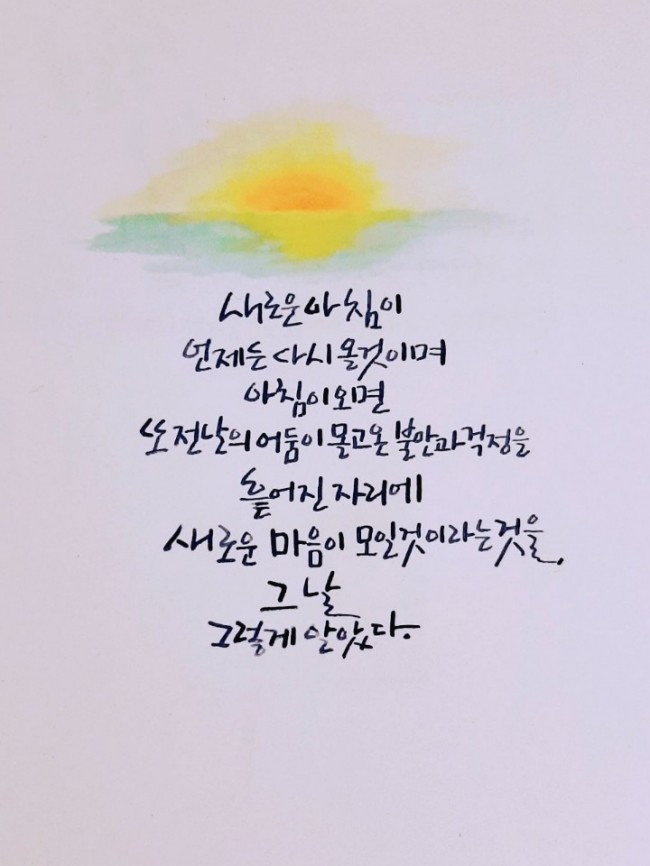 새로운 아침이
언제든 다시 올것이며
아침이 오면
또 전날의 어둠이 몰고온 불안과 걱정을
흩어진 자리에
새로운 마음이 모일것이라는것을,
그 날
그렇게 알았다.